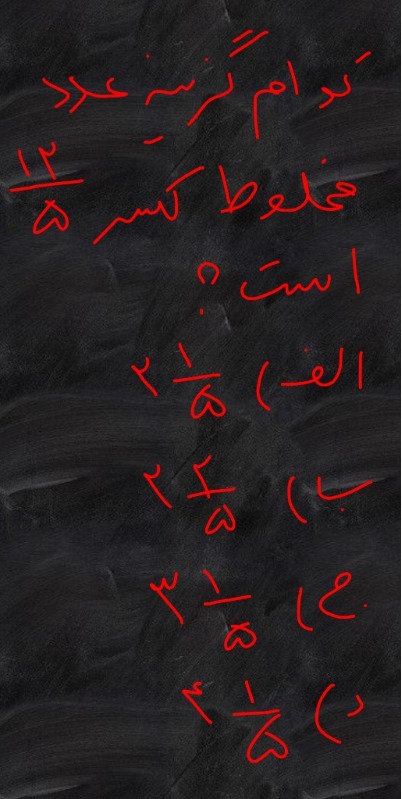 کدام گزینه عدد
مخلوط کسر ۱۲/۵
است؟
الف) ۲ ۱/۵
ب) ۲ ۲/۵
ج) ۳ ۱/۵
د) ۴ ۱/۵